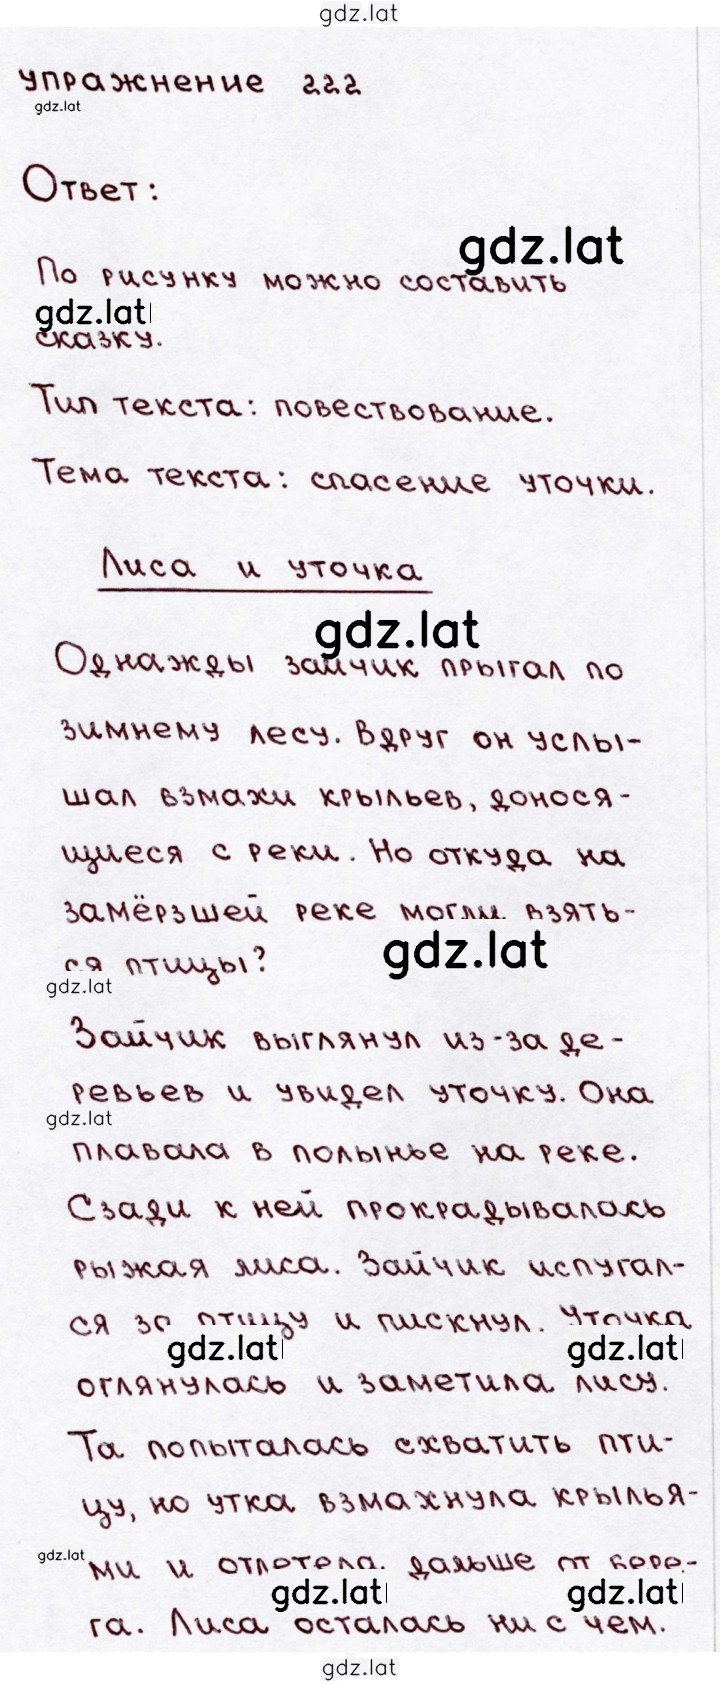 gdz.lat
упражнение 222
gdz.lat
Ответ:
gdz.lat
По рисунку можно составить
gdz.lat
сказку.
Тип текста: повествование.
Тема текста: спасение уточки.
Лиса и уточка
gdz.lat
Однажды зайчик прыгал по
зимнему лесу. Вдруг он услы-
шал взмахи крыльев, донося-
щиеся с реки. Но откуда на
замёрзшей реке могли взять-
gdz.lat
ся птицы?
gdz.lat
Зайчик выглянул из-за де-
ревьев и увидел уточку. Она
gdz.lat
плавала в полынье на реке.
Сзади к ней прокрадывалась
рыжая лиса. Зайчик испугал-
ся за птицу и пискнул. Уточка
gdz.lat gdz.lat
оглянулась и заметила лису.
Та попыталась схватить пти-
цу, но утка взмахнула крылья-
gdz.lat
ми и отлетела дальше от бере-
gdz.lat gdz.lat
га. Лиса осталась ни с чем.
gdz.lat